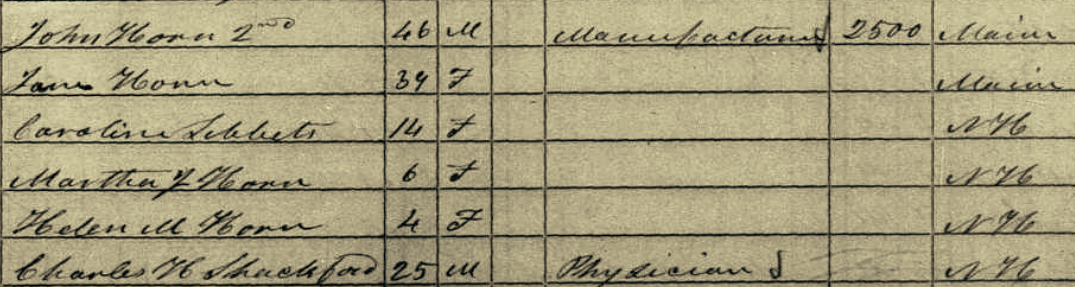 John Horn 2nd 46 M Manufacturer 2500 Maine
Jane Horn 39 F Maine
Caroline Tebbets 14 F N H
Martha J Horn 6 F N H
Helen M Horn 4 F N H
Charles H Shackford 25 M Physician N H